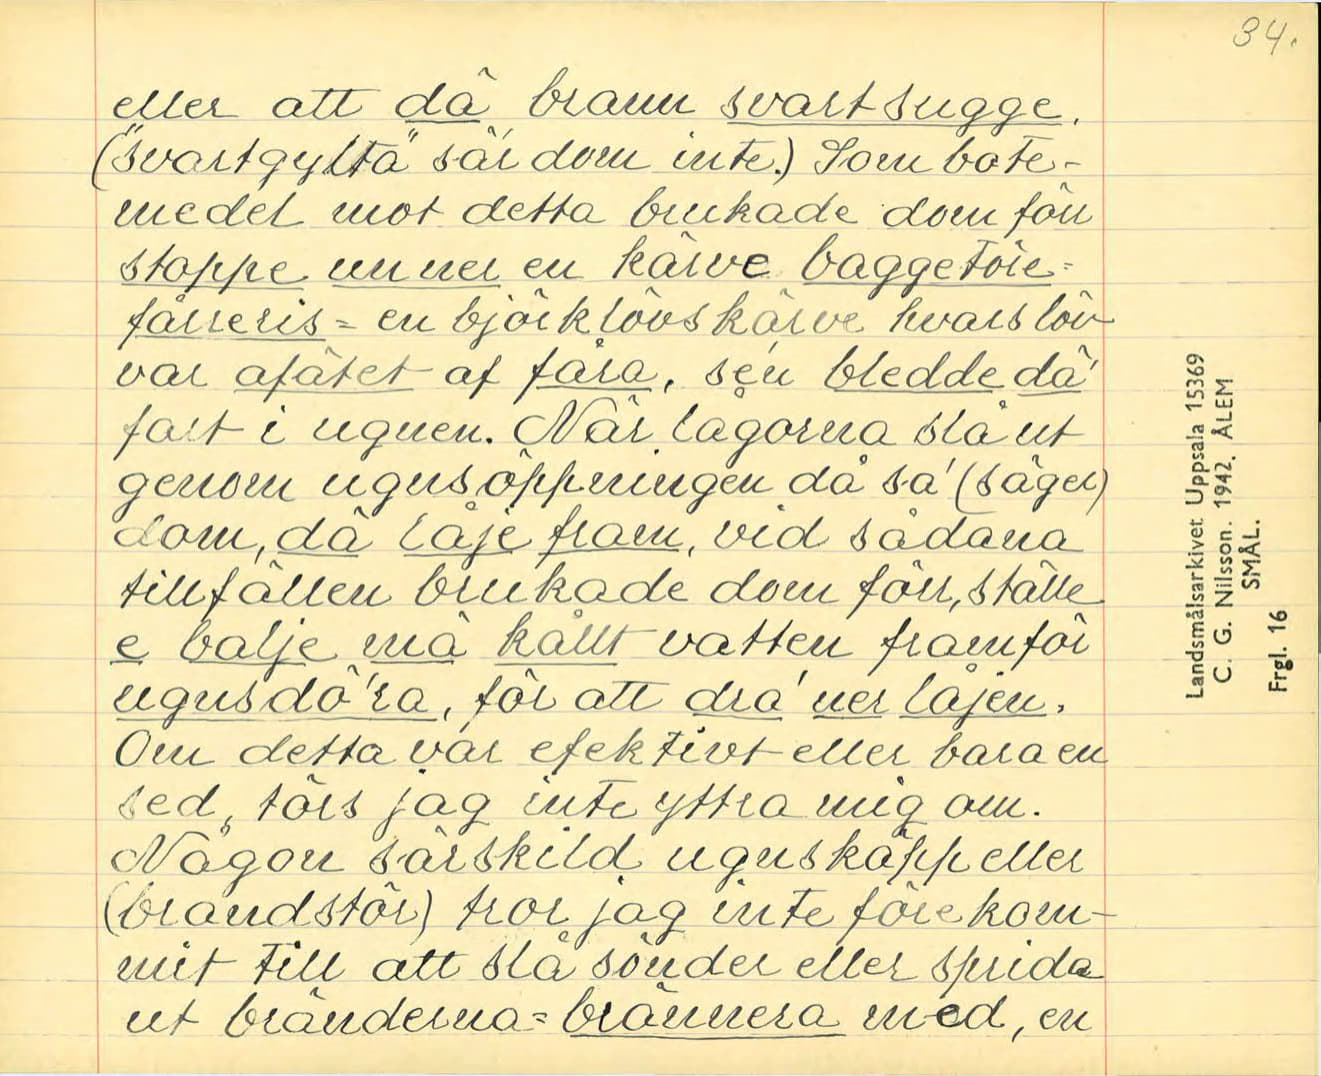 34.
eller att dä brann svartsugge.
("svartgyltä" sär dom inte.) Som bote-
medel mot detta brukade dom förr
stoppe unner en kärve baggetöre=
fårreris = en björklövskärve hvars löv
var afätet af fåra, sén bledde dä'
fart i ugnen. När lågorna slå ut
genom ugnsöppningen då sä' (säger)
dom, dä låje fram, vid sådana
tillfällen brukade dom förr, ställe
e balje mä kallt vatten framför
ugnsdö'ra, för att dra' ner låjen.
Om detta var efektivt eller bara en
sed, törs jag inte yttra mig om.
Någon särskild ugnskäpp eller
(brandstör) tror jag inte förekom-
mit till att slå sönder eller sprida
ut bränderna = brännera med, en
Landsmålsarkivet Uppsala 15369
C. G. Nilsson. 1942. ÅLEM
SMÅL.
Frgl. 16